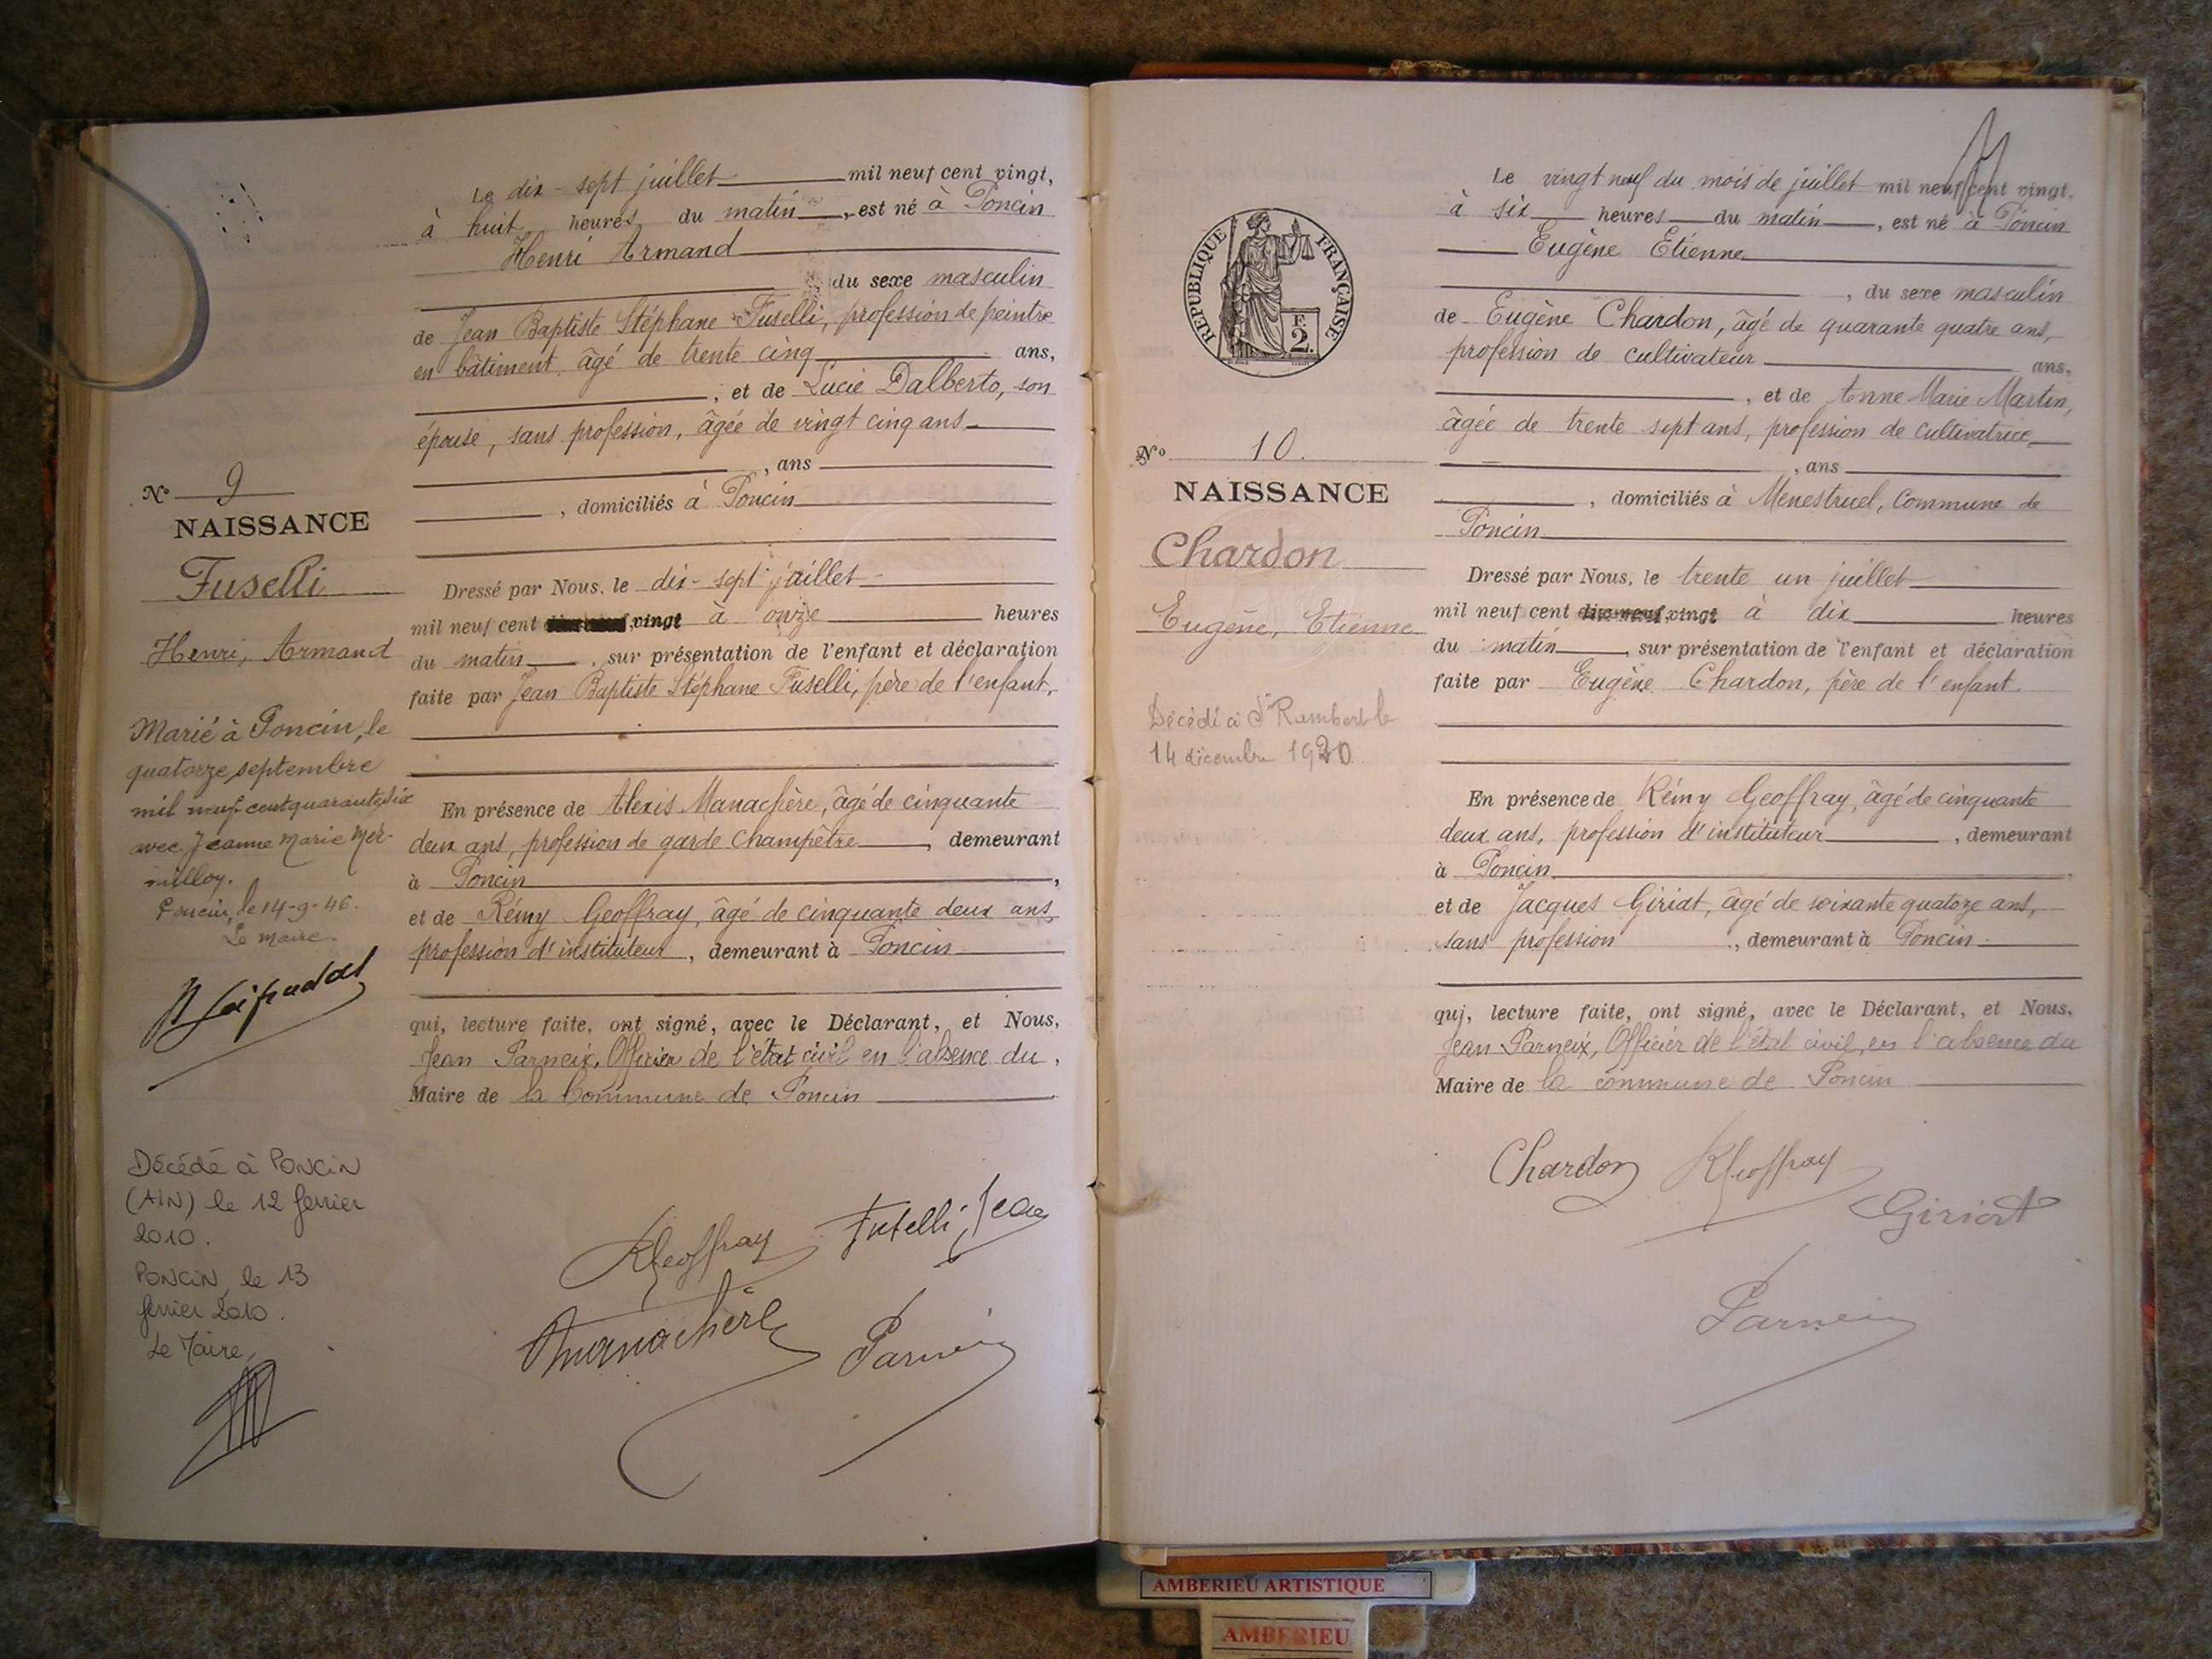 Le dix-sept juillet mil neuf cent vingt,
à huit heures du matin, est né à Poncin
Henri Armand
du sexe masculin
de Jean Baptiste Stéphane Fuselli, profession de peintre
en bâtiment âgé de trente cinq ans,
, et de Lucie Dalberto, son
épouse, sans profession, âgée de vingt cinq ans
, ans
, domiciliés à Poncin
N° 9
NAISSANCE
Fuselli
Henri, Armand
Marié à Poncin, le
quatorze septembre
mil neuf cent quarante six
avec Jeanne Marie Mer-
milloy.
Poncin, le 14-9-46.
Le Maire
Décédé à PONCIN
(AIN) le 12 février
2010.
PONCIN, le 13
février 2010.
Le Maire,
Dressé par Nous, le dix-sept juillet
mil neuf cent vingt à onze heures
du matin, sur présentation de l'enfant et déclaration
faite par Jean Baptiste Stéphane Fuselli, père de l'enfant,
En présence de Alexis Manachère, âgé de cinquante
deux ans, profession de garde champêtre, demeurant
à Poncin,
et de Rémy Geoffray, âgé de cinquante deux ans,
profession d'instituteur, demeurant à Poncin
qui, lecture faite, ont signé, avec le Déclarant, et Nous,
Jean Parneix, Officier de l'état civil en l'absence du,
Maire de la Commune de Poncin
RGeoffray Fuselli Jean
Manachère Parneix
Le vingt neuf du mois de juillet mil neuf cent vingt.
à six heures du matin, est né à Poncin
Eugène Etienne
, du sexe masculin
de Eugène Chardon, âgé de quarante quatre ans,
profession de cultivateur ans,
, et de Anne Marie Martin,
âgée de trente sept ans, profession de cultivatrice
, ans
, domiciliés à Menestruel, commune de
Poncin
REPUBLIQUE FRANÇAISE
F.
2.
N° 10.
NAISSANCE
Chardon
Eugène, Etienne
Décédé à St Rambert le
14 décembre 1920
Dressé par Nous, le trente un juillet
mil neuf cent dix-neuf, vingt à dix heures
du matin, sur présentation de l'enfant et déclaration
faite par Eugène Chardon, père de l'enfant
En présence de Rémy Geoffray, âgé de cinquante
deux ans, profession d'instituteur, demeurant
à Poncin,
et de Jacques Giriat, âgé de soixante quatorze ans,
sans profession, demeurant à Poncin
qui, lecture faite, ont signé, avec le Déclarant, et Nous,
Jean Parneix, Officier de l'état civil, en l'absence du
Maire de la commune de Poncin
Chardon RGeoffray
Giriat
Parneix
AMBERIEU ARTISTIQUE
AMBERIEU